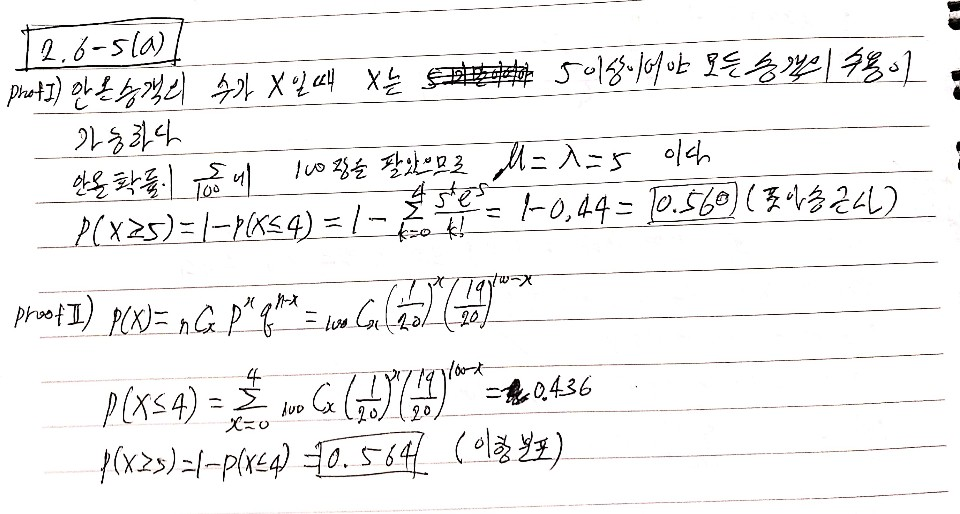 2.6-5(a)
proof I) 안온 승객의 수가 X일때 X는 5이상이어야 모든 승객의 수용이
가능하다
안올 확률이 5/100 에 100장을 팔았으므로 μ = λ = 5 이다
P(X≥5) = 1-P(X≤4) = 1 - \sum_{k=0}^{4} \frac{5^k e^5}{k!} = 1-0.44 = 0.560 (포아송근사)
proof II) P(X) = nCx p^x q^{n-x} = 100Cx (1/20)^x (19/20)^{100-x}
P(X≤4) = \sum_{x=0}^{4} 100Cx (1/20)^x (19/20)^{100-x} = 0.436
P(X≥5) = 1-P(X≤4) = 0.564 (이항분포)